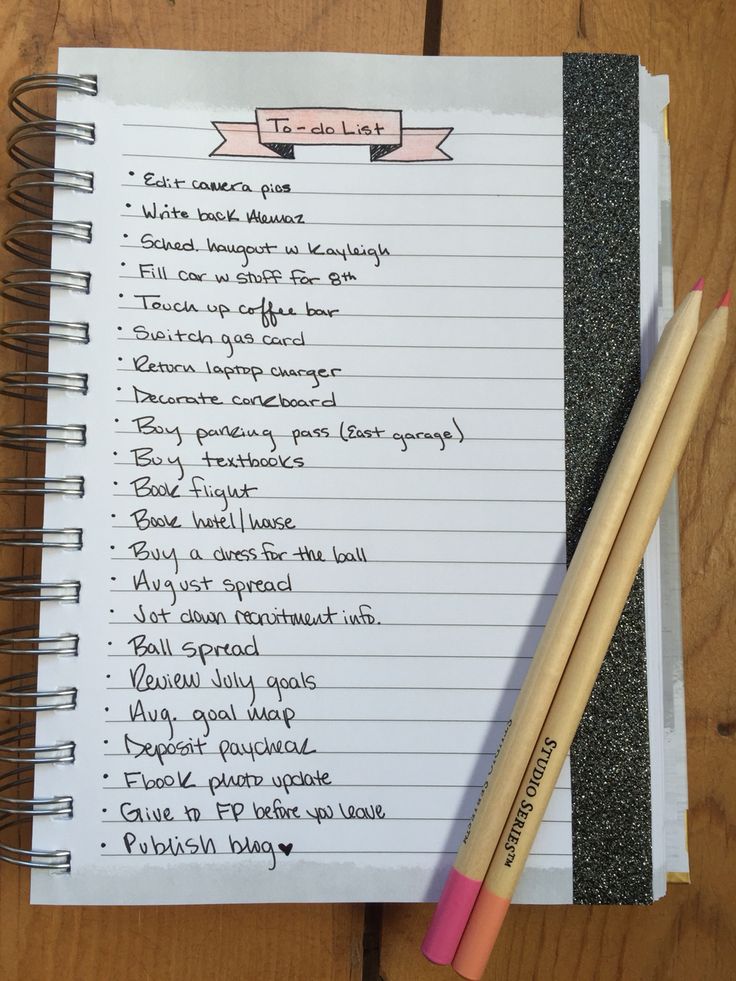 To-do List
• Edit camera pics
• Write back Alemaz
• Sched. hangout w Kayleigh
• Fill car w stuff for 8th
• Touch up coffee bar
• Switch gas card
• Return laptop charger
• Decorate corkboard
• Buy parking pass (East garage)
• Buy textbooks
• Book flight
• Book hotel/house
• Buy a dress for the ball
• August spread
• Jot down recruitment info.
• Ball spread
• Review July goals
• Aug. goal map
• Deposit paycheck
• Fbook photo update
• Give to FP before you leave
• Publish blog ♥
STUDIO SERIES™